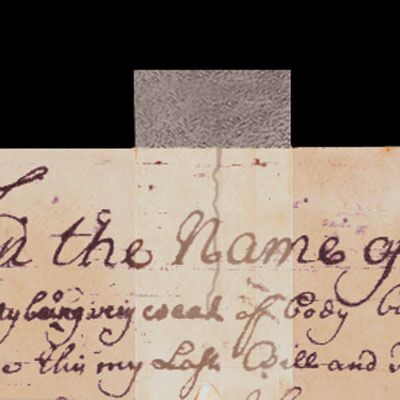 the Name of
being very weak off body
thiss my Last Will and